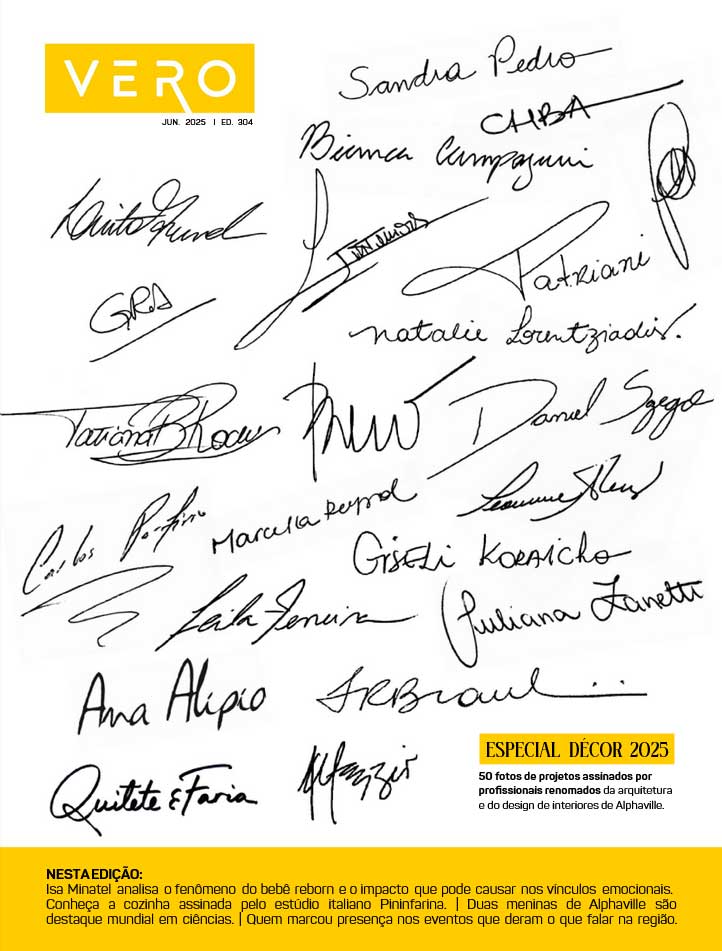 VERO
JUN. 2025 | ED. 304
Sandra Pedro
CHBA
Bianca
GRA
Patriani
Natalie Lorentziadis.
Tatiana
Daniel
Carlos Porfirio
Marcella
Giseli Koraicho
Leila Ferreira
Juliana Zanetti
Ana Alipio
Quitete & Faria
ESPECIAL DÉCOR 2025
50 fotos de projetos assinados por
profissionais renomados da arquitetura
e do design de interiores de Alphaville.
NESTA EDIÇÃO:
Isa Minatel analisa o fenômeno do bebê reborn e o impacto que pode causar nos vínculos emocionais.
Conheça a cozinha assinada pelo estúdio italiano Pininfarina. | Duas meninas de Alphaville são
destaque mundial em ciências. | Quem marcou presença nos eventos que deram o que falar na região.